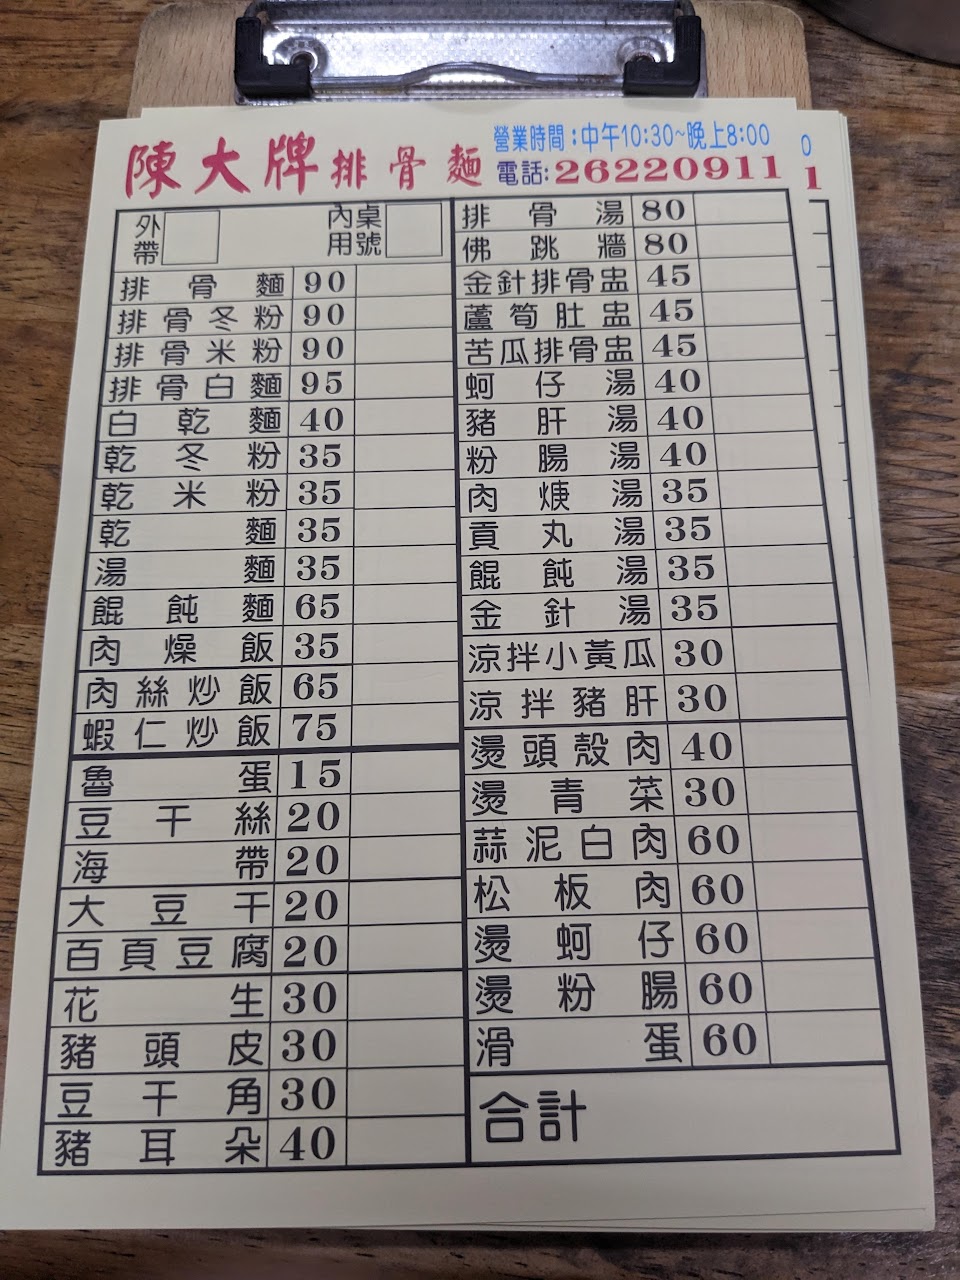 陳大牌排骨麵
營業時間:中午10:30~晚上8:00
電話:26220911
0
1
外帶
內用 桌號
排骨麵 90
排骨冬粉 90
排骨米粉 90
排骨白麵 95
白乾麵 40
乾冬粉 35
乾米粉 35
乾麵 35
湯麵 35
餛飩麵 65
肉燥飯 35
肉絲炒飯 65
蝦仁炒飯 75
魯蛋 15
豆干絲 20
海帶 20
大豆干 20
百頁豆腐 20
花生 30
豬頭皮 30
豆干角 30
豬耳朵 40
排骨湯 80
佛跳牆 80
金針排骨盅 45
蘆筍肚盅 45
苦瓜排骨盅 45
蚵仔湯 40
豬肝湯 40
粉腸湯 40
肉焿湯 35
貢丸湯 35
餛飩湯 35
金針湯 35
涼拌小黃瓜 30
涼拌豬肝 30
燙頭殼肉 40
燙青菜 30
蒜泥白肉 60
松板肉 60
燙蚵仔 60
燙粉腸 60
滑蛋 60
合計